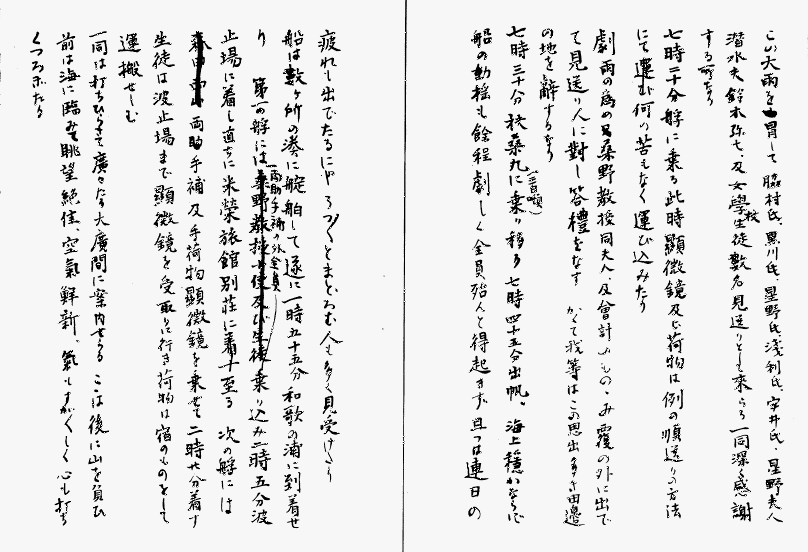 この大雨を冒して脇村氏、黒川氏、星野氏、浅利氏、安井氏、星野夫人
潜水夫鈴木弥七、及女学校生徒数名見送りとして来らる一同深く感謝
する所なり
七時二十分艀に乗る此時顕微鏡及び荷物は例の順送りの方法
にて運び何の苦もなく運び込みたり
劇雨の為め桑野教授同夫人、及会計のもののみ覆の外に出で
て見送り人に対し答禮をなす かくて我等はこの思出多き田邊
の地を辞するなり
七時三十分 丸に(三百噸)乗り移る 七時四十五分出帆、海上穏かならず
船の動揺も餘程劇しく全員殆んと得起きず 且つは連日の
疲れも出でたるにや うつくとまどろむ人も多く見受けたり
船は数ヶ所の湊に碇舶して遂に一時五十五分和歌の浦に到着せ
り 第一の艀には両助手補の外全員乗り込み二時五分波
止場に着し直ちに米榮旅館別荘に至る 次の艀には
両助手補及手荷物顕微鏡を乗せて二時廿分着す
生徒は波止場まで顕微鏡を受取りに行き荷物は宿のものをして
運搬せしむ
一同は打ちひらきて廣々たる大廣間に案内せらる こは後に山を負ひ
前は海に臨みて眺望絶佳、空氣鮮新、氣もすがくしく心も打ち
くつろぎたり